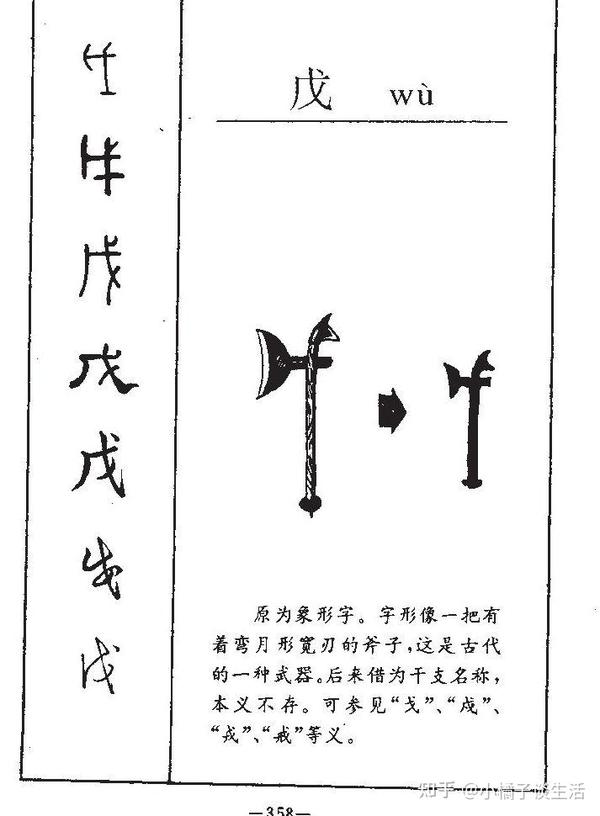 戊
戊
戊
戊
戊
戊
戊
戊 wù
原为象形字。字形像一把有
着弯月形宽刃的斧子,这是古代
的一种武器。后来借为干支名称,
本义不存。可参见“戈”、“戍”、
“戎”、“戒”等义。
—358—
知乎 @小橘子谈生活